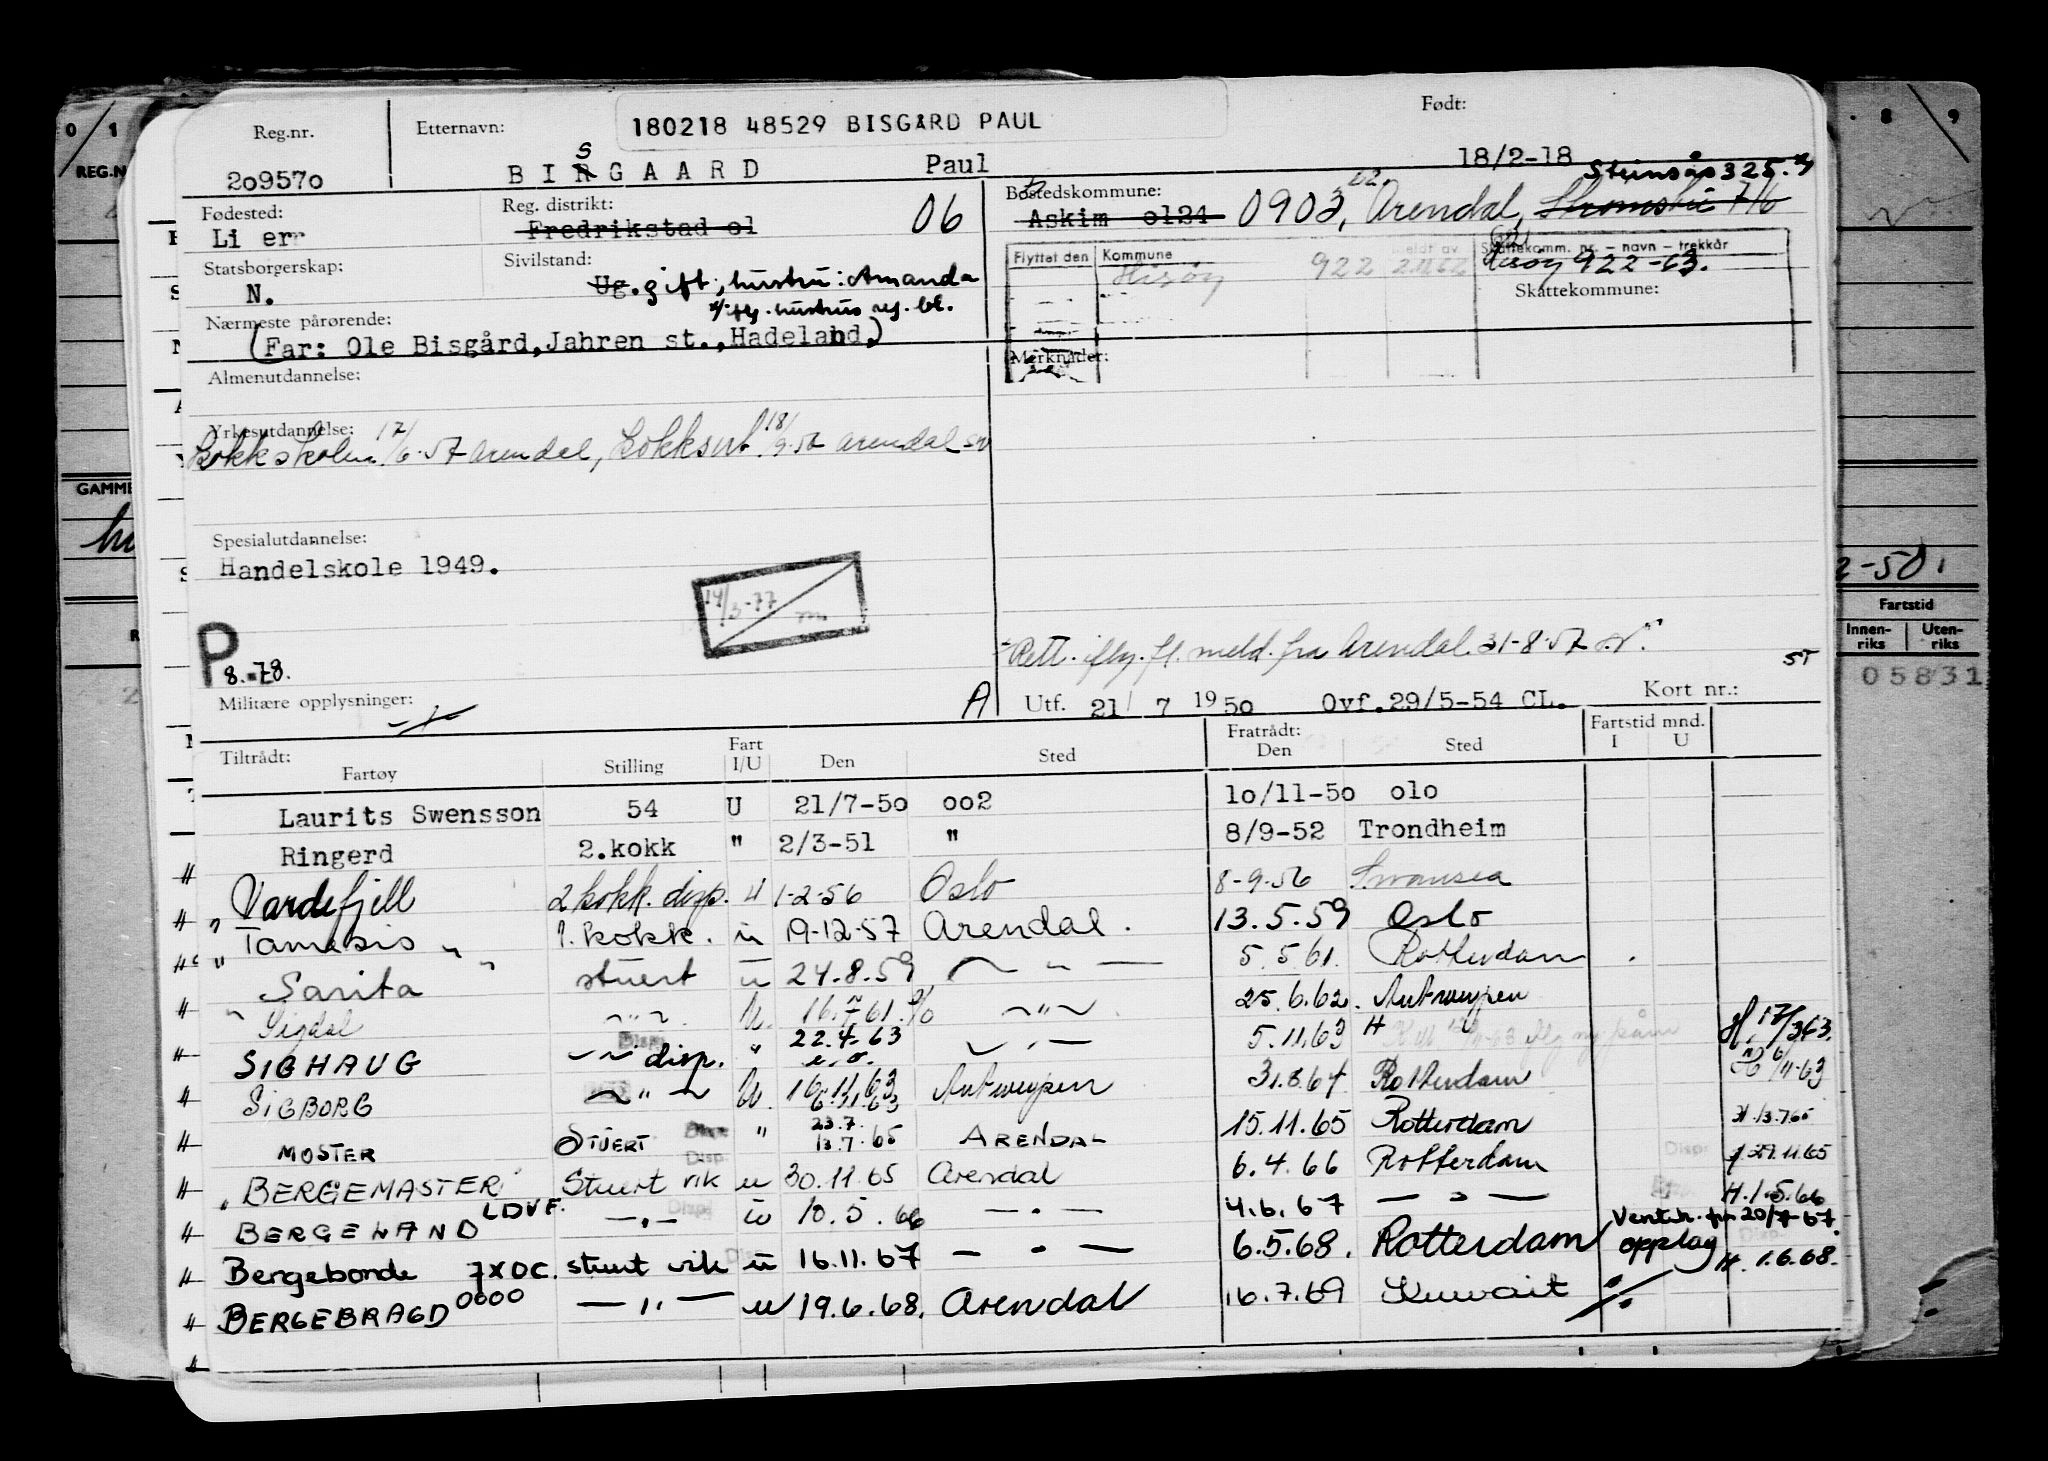 Reg.nr.
Etternavn:
180218 48529 BISGÅRD PAUL
Født:
209570
BIRGAARD Paul
S
18/2-18
Steinsås 325.
Fødested:
Reg. distrikt:
Bostedskommune:
Li err
Fredrikstad ol
06
Askim ol24 0903, Arendal,
Statsborgerskap:
Sivilstand:
Flyttet den
Kommune
Skattekomm. nr. – navn – trekkår
N.
Ug. gift, hustru: Amanda
Hisøy
922
Hisøy 922-63.
Skattekommune:
Nærmeste pårørende:
(Far: Ole Bisgård, Jahren st., Hadeland,)
Merknader:
Almenutdannelse:
Yrkesutdannelse:
Kokkskolen 17/6-57 Arendal, Kokksert. 18/9-57 Arendal
Spesialutdannelse:
Handelskole 1949.
14/3-77
P
8.-78.
Rett. iflg. fl. meld. fra Arendal 31-8-57
Militære opplysninger:
A
Utf. 21/ 7 1950 Ovf. 29/5-54 CL.
Kort nr.:
Tiltrådt:
Fratrådt:
Fartstid mnd.
Fartøy
Stilling
Fart I/U
Den
Sted
Den
Sted
I
U
Laurits Swensson 54 U 21/7-50 oo2 10/11-50 olo
Ringerd 2.kokk " 2/3-51 " 8/9-52 Trondheim
Vardefjell 2 kokk. disp. u 1-2-56 Oslo 8-9-56 Swansea
" Tamesis 1. kokk. u 19-12-57 Arendal. 13.5.59 Oslo
" Sarita stuert u 24.8.59 — " — 5.5.61. Rotterdam
" Sigdal — " — U. 16.7.61. — " — 25.6.62. Antwerpen
SIGHAUG — " — disp. " 22.4.63 — " — 5.11.63 H. 17/363.
SIGBORG — " — U. 16.11.63 Antwerpen 31.8.64 Rotterdam 6/11-63
MOSTER STUERT " 23.7. 13.7.65 ARENDAL 15.11.65 Rotterdam H. 13.765
" BERGEMASTER Stuert vik u 30.11.65 Arendal 6.4.66 Rotterdam 29.11.65
BERGELAND LDVF. — " — u 10.5.66 — " — 4.6.67 — " — H. 1.5.66
Bergebonde 7XOC. stuert vik u 16.11.67 — " — 6.5.68. Rotterdam opplag H. 1.6.68.
BERGEBRAGD 0000 — " — u 19.6.68. Arendal 16.7.69 Kuwait
0/1
REG.N
GAMME
8
9
2-50.
Fartstid
Innen-riks
Uten-riks
05831